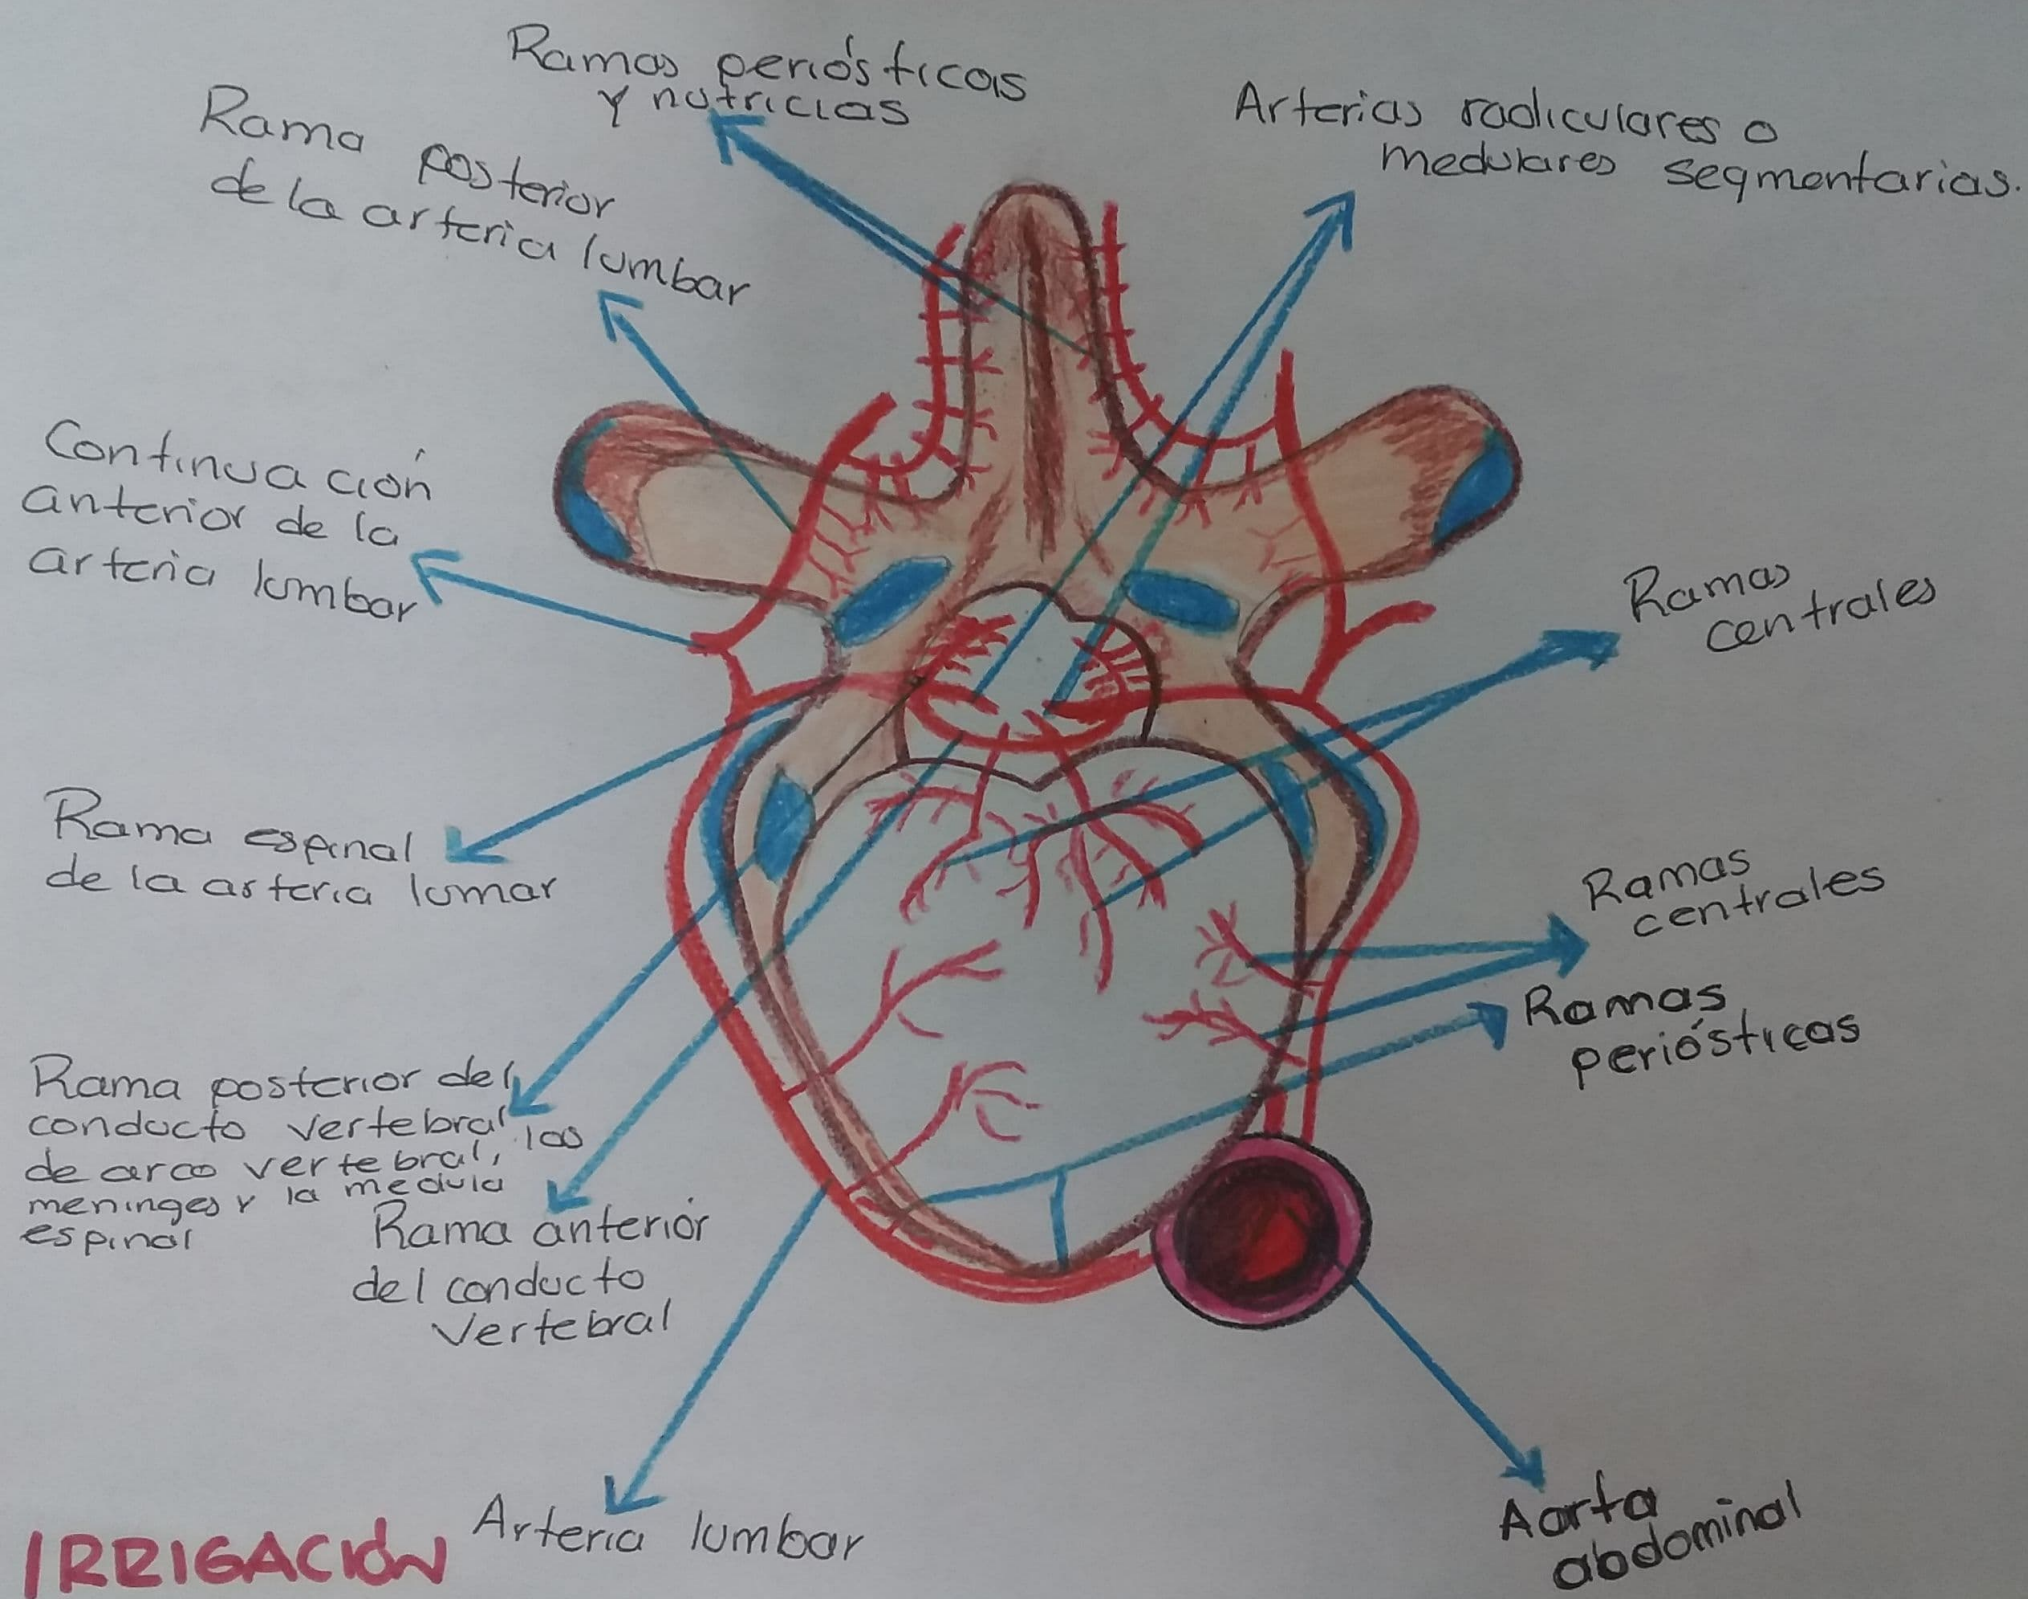 Ramas periósticas
y nutricias
Rama posterior
de la arteria lumbar
Arterias radiculares o
medulares segmentarias.
Continuación
anterior de la
arteria lumbar
Ramas
centrales
Rama espinal
de la arteria lumar
Ramas
centrales
Ramas
periósticas
Rama posterior del
conducto vertebral, los
de arco vertebral,
meninges y la medula
espinal
Rama anterior
del conducto
vertebral
Arteria lumbar
Aorta
abdominal
IRRIGACIÓN